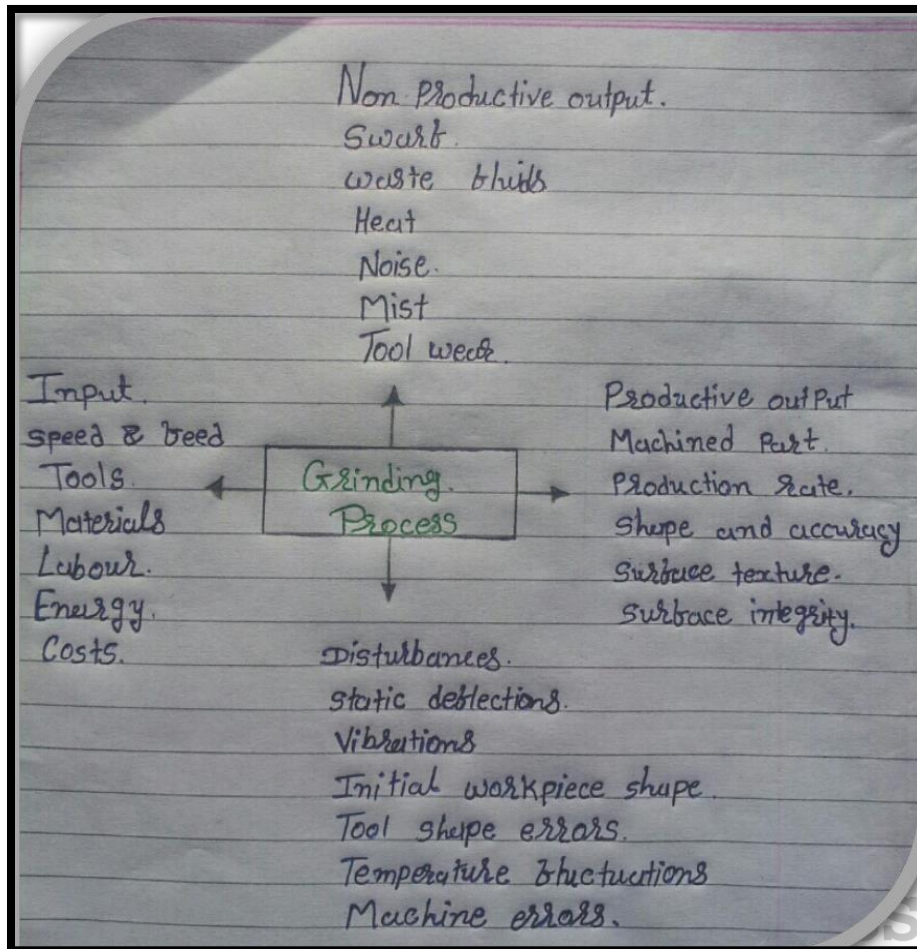 Non Productive output.
Swarf.
waste fluids
Heat
Noise.
Mist
Tool wear.
Input.
speed & feed
Tools.
Materials
Labour.
Energy.
Costs.
Grinding.
Process
Productive output
Machined Part.
Production rate.
Shape and accuracy
Surface texture.
Surface integrity.
Disturbances.
Static deflections.
Vibrations
Initial workpiece shape.
Tool shape errors.
Temperature fluctuations
Machine errors.